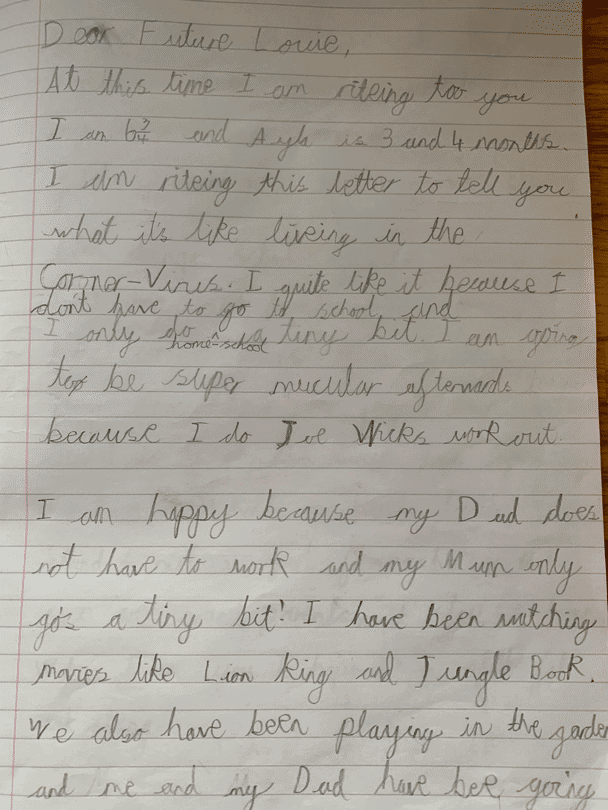 Dear Future Louie,
At this time I am riteing too you
I am 6 3/4 and Ayla is 3 and 4 months.
I am riteing this letter to tell you
what it's like liveing in the
Coroner-Virus. I quite like it because I
don't have to go to school and
I only do a tiny bit. I am going
home-school
to be super mucular afterwards
because I do Joe Wicks work out.
I am happy because my Dad does
not have to work and my Mum only
go's a tiny bit! I have been watching
movies like Lion King and Jungle Book.
We also have been playing in the garden
and me and my Dad have bee going